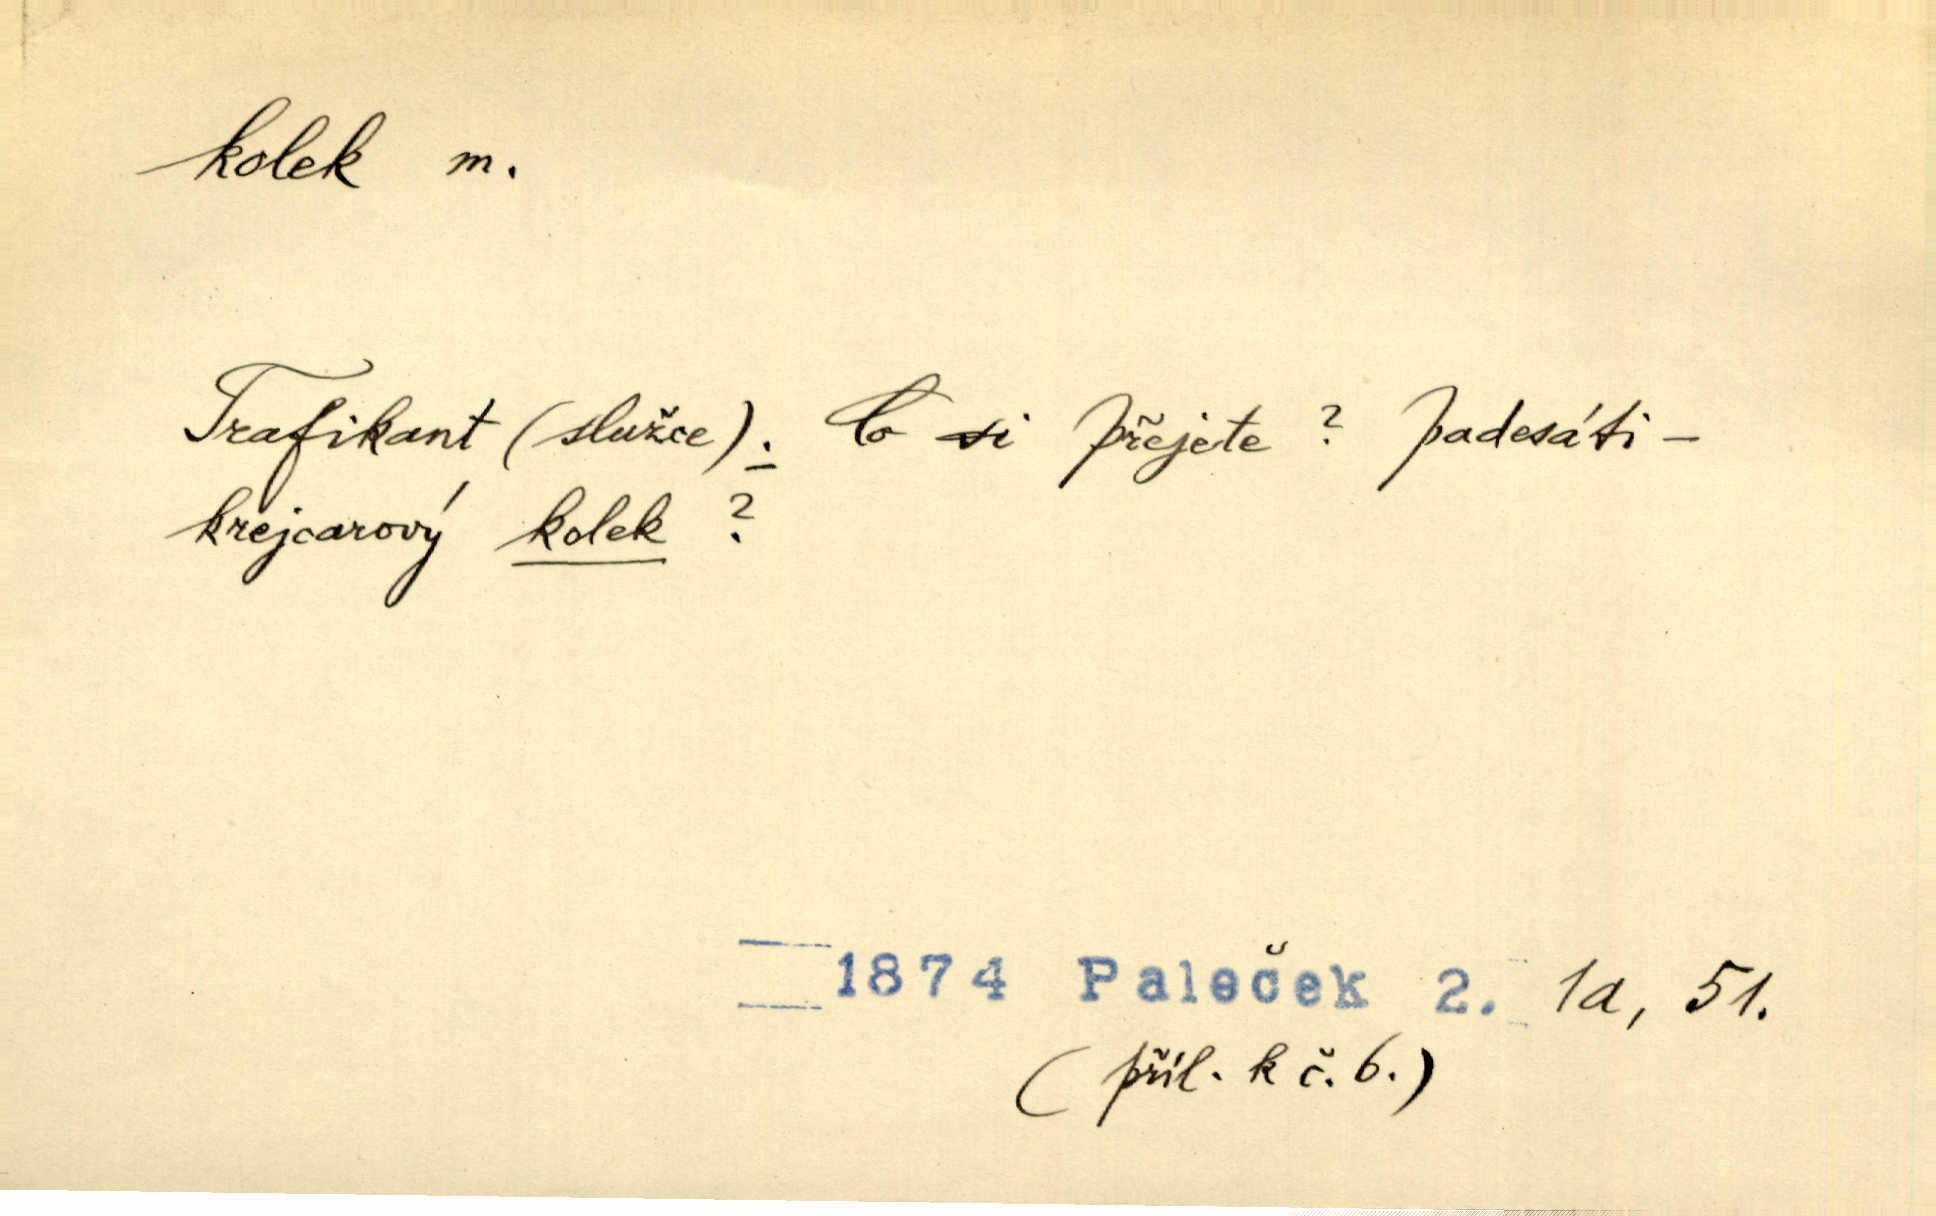 kolek m.
Trafikant (služce). Co si přejete? padesáti-
krejcarový kolek?
1874 Paleček 2. 1a, 51.
(příl. k č. 6.)